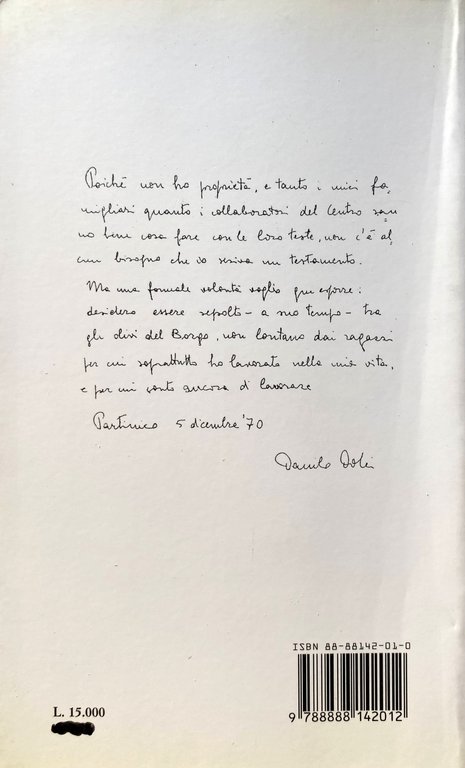 Poiché non ho proprietà, e tanto i miei fa=
migliari quanto i collaboratori del Centro san
no bene cosa fare con le loro teste, non c'è al
cun bisogno che io scriva un testamento.
Ma una formale volontà voglio qui esporre:
desidero essere sepolto - a suo tempo - tra
gli olivi del Borgo, non lontano dai ragazzi
per cui soprattutto ho lavorato nella mia vita,
e per cui conto ancora di lavorare
Partinico 5 dicembre '70
Danilo Dolci
ISBN 88-88142-01-0
9 788888 142012
L. 15.000